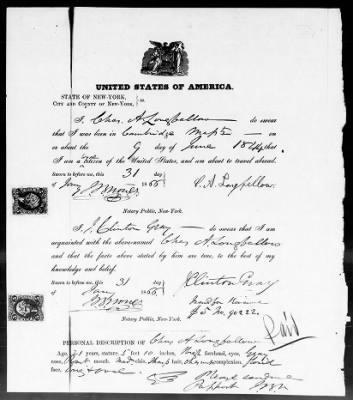 UNITED STATES OF AMERICA.
STATE OF NEW-YORK,
CITY AND COUNTY OF NEW-YORK, } ss.
I, Chas. A Longfellow do swear
that I was born in Cambridge Mass on
or about the 9 day of June 1844 that
I am a citizen of the United States, and am about to travel abroad.
Sworn to before me, this 31 day
of Jany 1866
C. A. Longfellow.
Notary Public, New-York.
I, J. Clinton Gray do swear that I am
acquainted with the above-named Chas A. Longfellow
and that the facts above stated by him are true, to the best of my
knowledge and belief.
Sworn to before me, this 31 day
of Jany 1866
J Clinton Gray
Notary Public, New-York.
PERSONAL DESCRIPTION of Chas A Longfellow
Age, 21 years, stature 5 feet 10 inches, high forehead, eyes, gray
nose, mouth, chin, hair, complexion,
face,